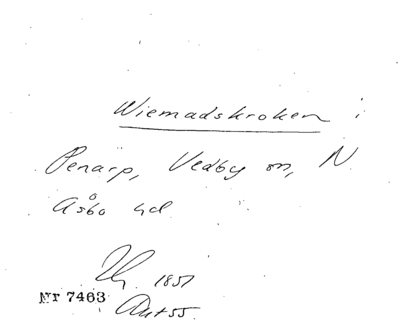 Wiemadskroken i
Penarp, Vedby sn, N
Åsbo hd
1851
Nr 7463